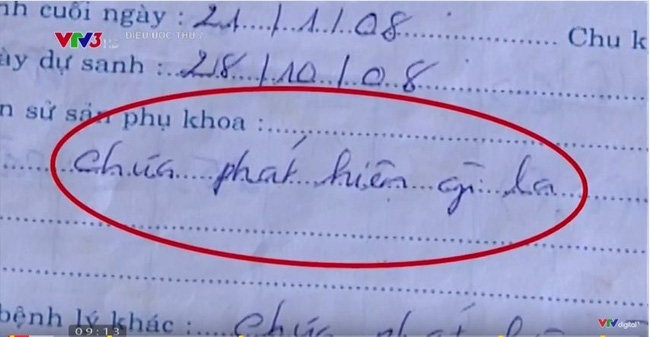 nh cuối ngày : 21 / 1 / 08
VTV3 ĐIỀU ƯỚC THỨ 7
Chu k
ày dự sanh : 28 / 10 / 08
n sử sản phụ khoa :
chưa phát hiện gì lạ
bệnh lý khác : chưa phát
09:13
VTV digital